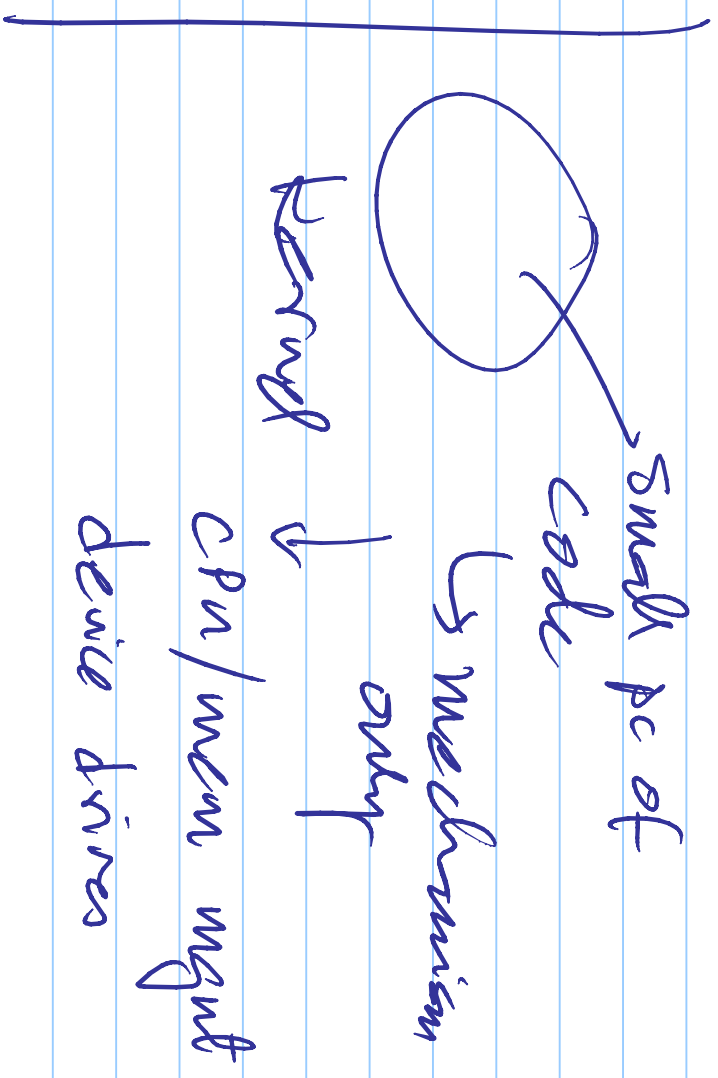 small pc of
code
↳ mechanism
only
kernel ↓
CPU/mem mgmt
device drives